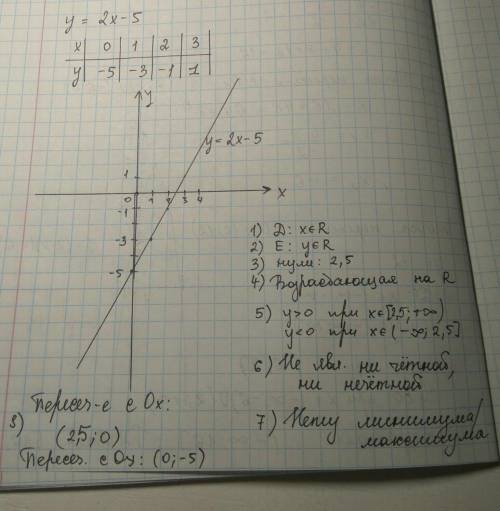 y = 2x-5
x 0 1 2 3
y -5 -3 -1 1
y
y=2x-5
1
0 1 2 3 4
x
-1
-3
-5
1) Д: x∈R
2) E: y∈R
3) нули: 2,5
4) Возрастающая на R
5) y>0 при x∈[2,5;+∞)
y<0 при x∈(-∞; 2,5]
6) Не явл. ни чётной,
ни нечётной
7) Нету минимума/
максимума
8) Пересеч-е с Ox:
(2,5;0)
Пересеч. с Oy: (0;-5)